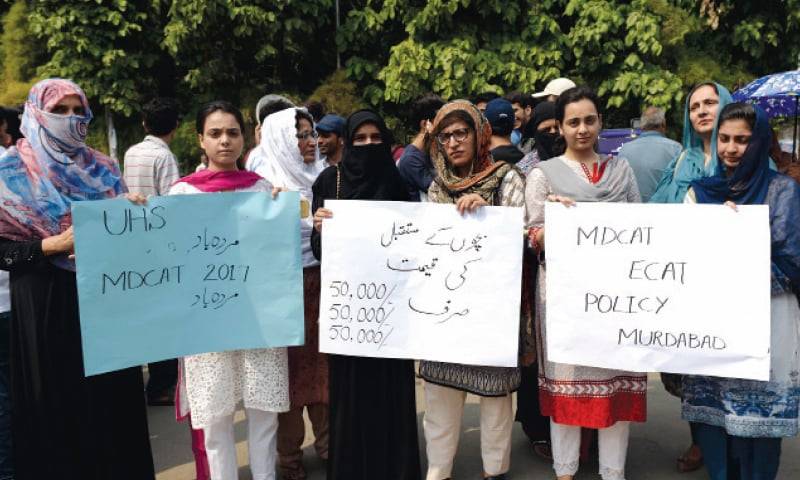 UHS
مردہ باد
MDCAT 2017
مردہ باد
بچوں کے مستقبل
کی قیمت
صرف
50,000/
50,000/
50,000/
MDCAT
ECAT
POLICY
MURDABAD